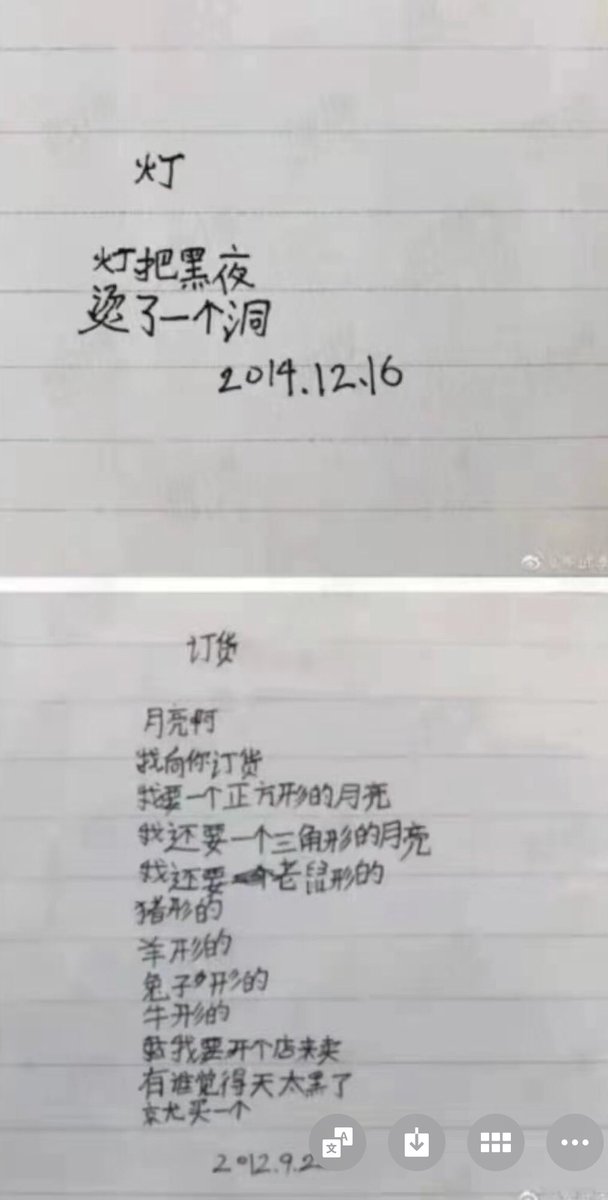 灯
灯把黑夜
烫了一个洞
2014.12.16
订货
月亮啊
我向你订货
我要一个正方形的月亮
我还要一个三角形的月亮
我还要老鼠形的
猪形的
羊形的
兔子形的
牛形的
我要开个店来卖
有谁觉得天太黑了
就买一个
2012.9.2